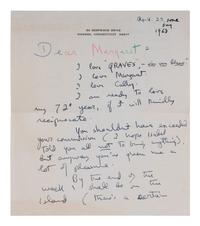 April 27, some
day
1963
Dear Margaret =
I love "GRAVES",
I love Margaret
I love Cathy
I am ready to love
my 72d year, if it will kindly
reciprocate.
You shouldn't have exceeded
your commission (I hope Isabel
told you all not to bring anything).
But anyway you've given me a
lot of pleasure.
By the end of the
week I shall be on the
island (there's a